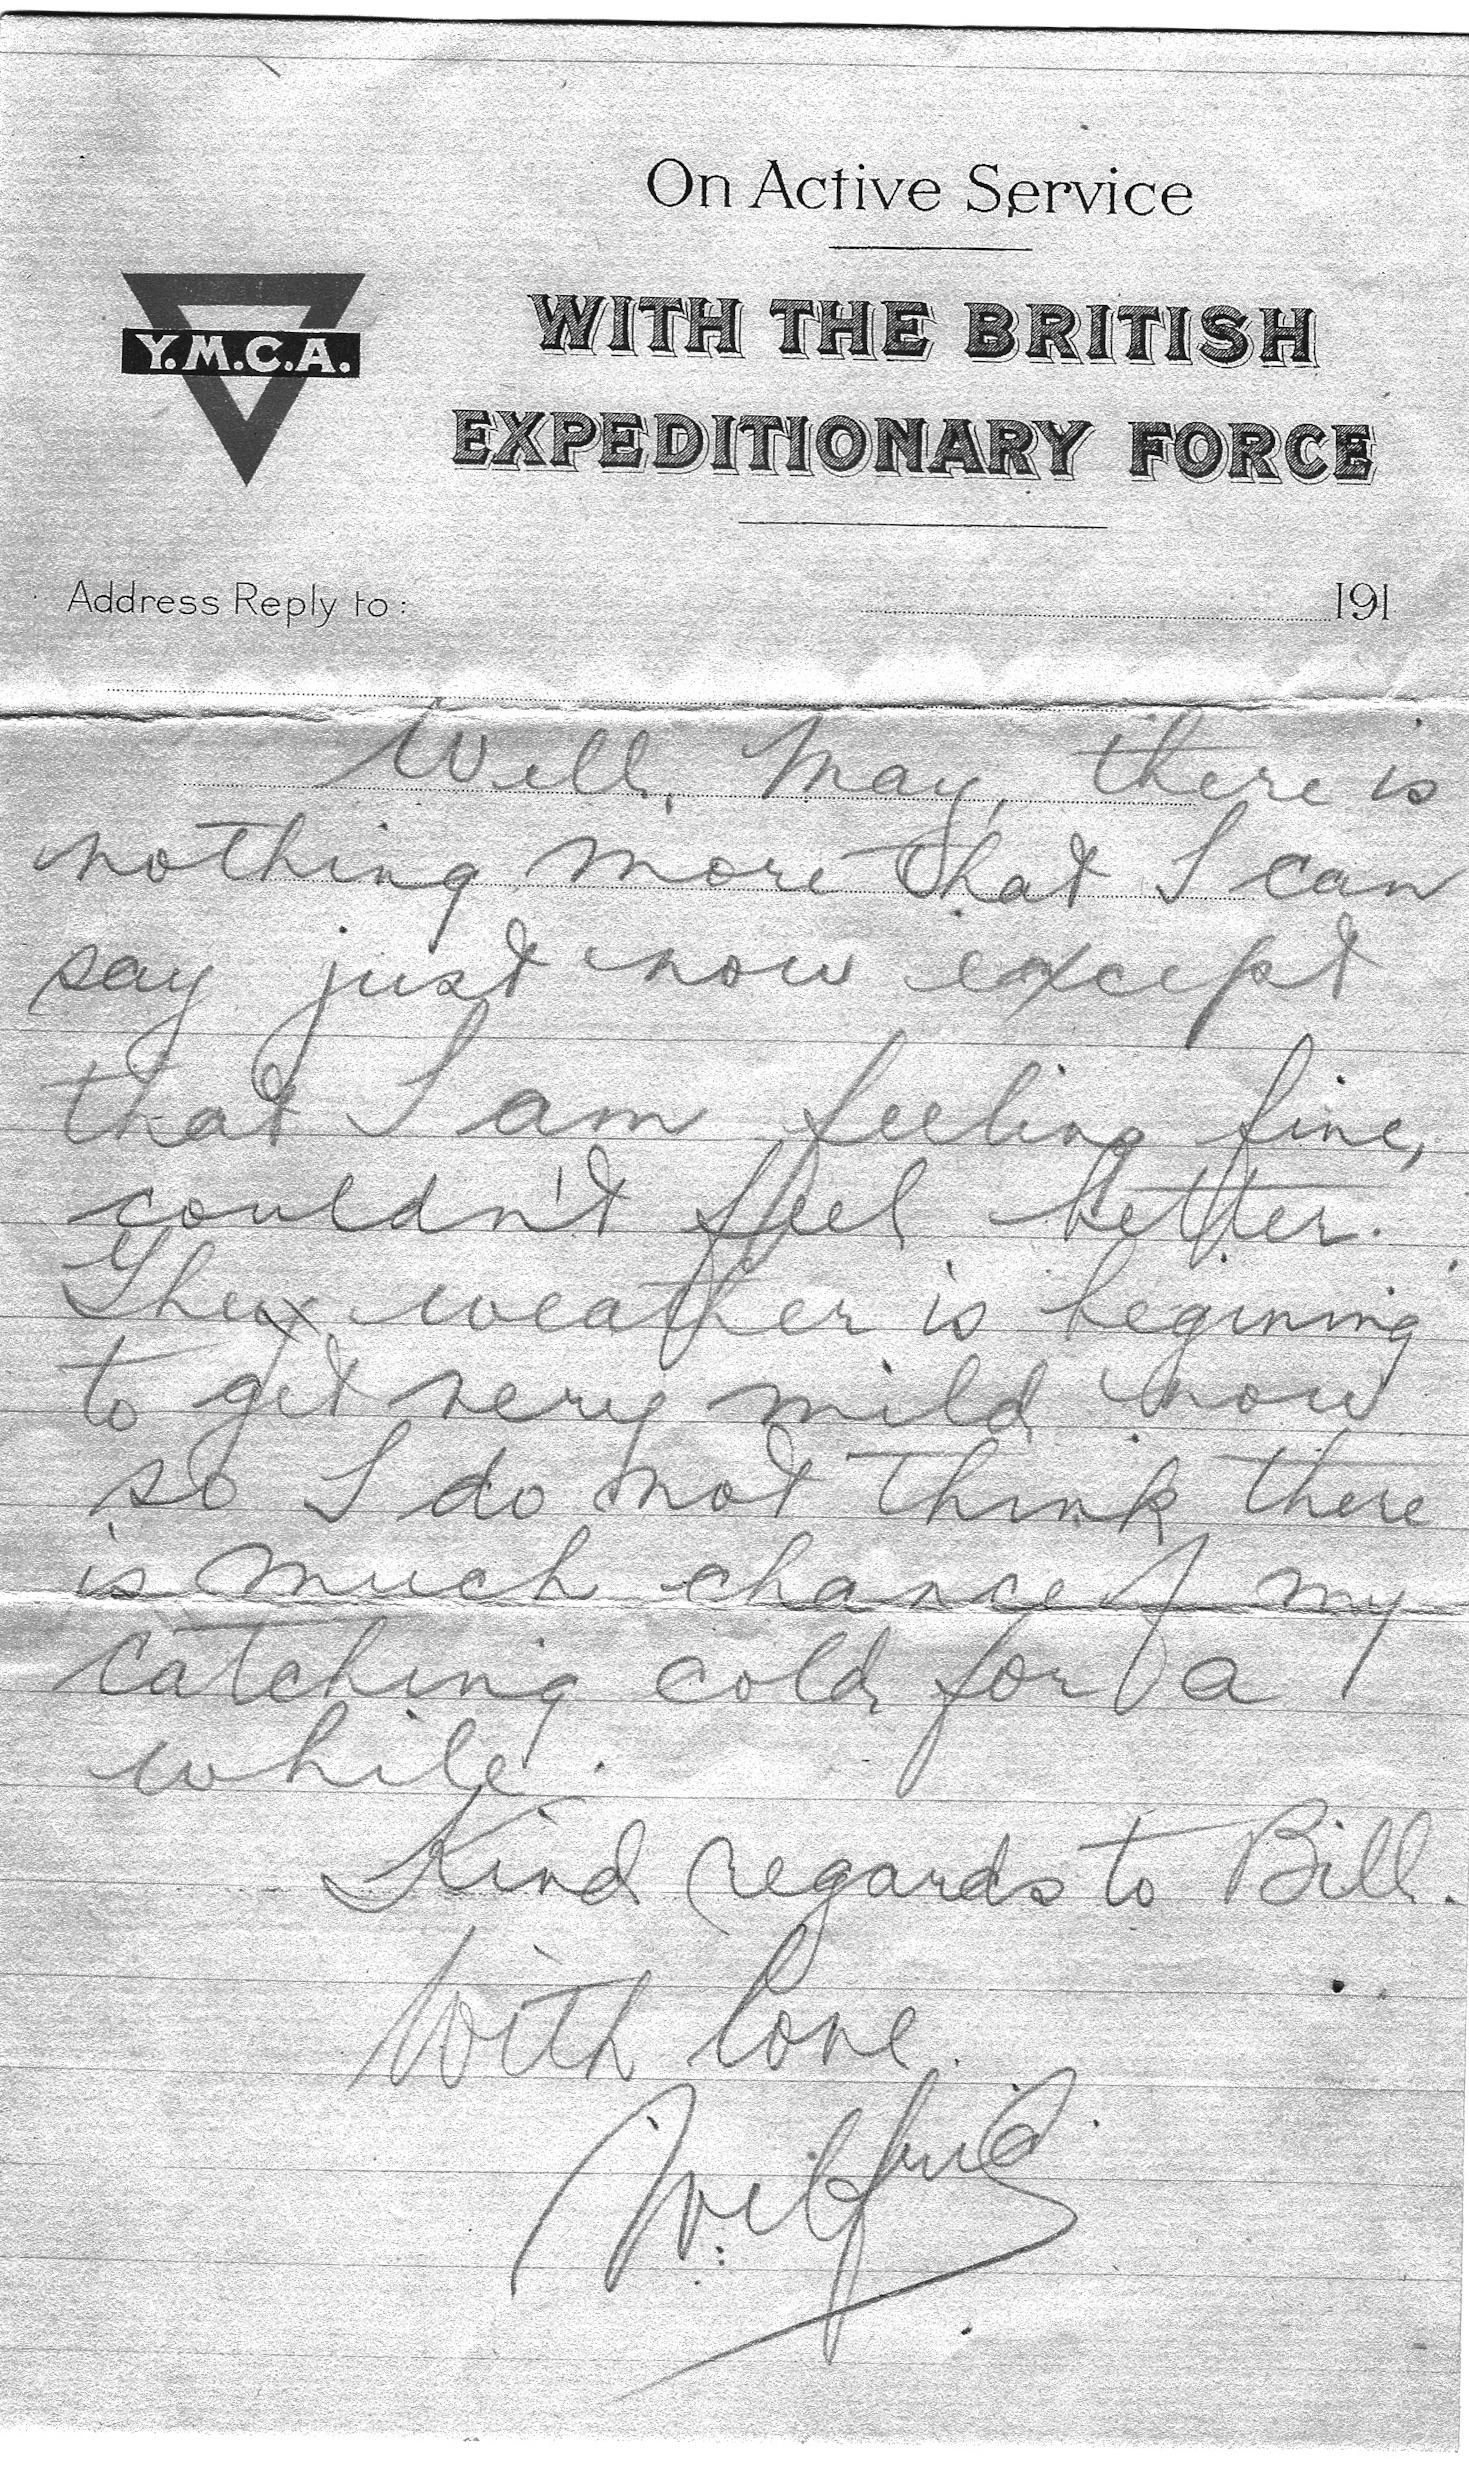 On Active Service
WITH THE BRITISH
EXPEDITIONARY FORCE
Y.M.C.A.
Address Reply to: 191
Well, May, there is
nothing more that I can
say just now except
that I am feeling fine,
couldn't feel better.
The weather is begining
to get very mild now
so I do not think there
is much chance of my
catching cold for a
while.
Kind regards to Bill.
With love.
Wilfrid